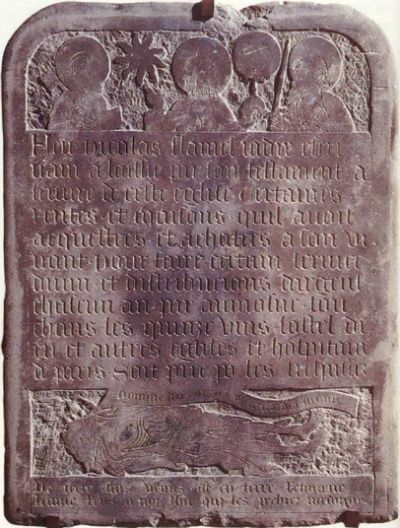 Feu nicolas flamel iadis escri
uain a laissie par son testament a
leuure de ceste eglise certaines
rentes et maisons quil auoit
acquestees et achatees a son vi
uant pour faire certain seruice
diuin et distribucions dargent
chascun an par aumosne tou
chans les quinze vins lostel di
eu et autres eglises et hospitaux
a paris Soit prie po les
Domine
De terre suis venus et en terre retorne
lame rens a toy ihu qui les pechiez pardonne